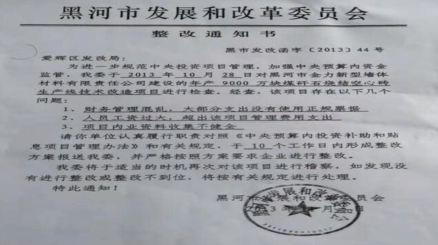 黑河市发展和改革委员会
整改通知书
黑市发改函字〔2013〕44号
爱辉区发改局：
为进一步规范中央投资项目管理，加强中央预算内资金
监管，我委于2013年10月28日对黑河市金力新型墙体
材料有限责任公司建设的年产9000万块煤矸石烧结空心砖
生产线技术改造项目进行检查，经查，该项目存在以下几个
问题：
1、财务管理混乱，大部分支出没有使用正规票据
2、人员工资过大，超出该项目管理费用支出
3、项目内业资料收集不健全
请你单位认真履行职责对照《中央预算内投资补助和贴
息项目管理办法》和有关规定，于10个工作日内形成整改
方案报送我委，并严格按照方案要求企业进行整改。
我委将于适当的时机再次对该项目进行稽察，如发现没
有进行整改或整改不到位，将按有关规定进行处理。
特此通知！
黑河市发展和改革委员会